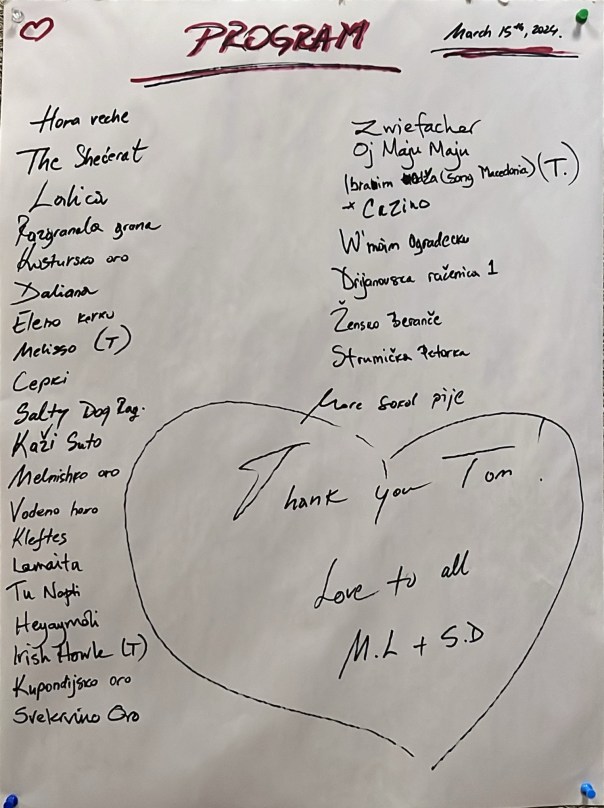 PROGRAM
March 15th, 2024.
Hora veche
The Shećerat
Lolica
Razgranala grana
Kustursko oro
Daliana
Eleno kerku
Melisso (T)
Cepki
Salty Dog Rag.
Kaži Suto
Melnishko oro
Vodeno horo
Kleftes
Lemaita
Tu Nopti
Heyaymoli
Irish Howle (T)
Kupondjijsko oro
Svekrvino Oro
Zwiefacher
Oj Maju Maju
Ibraim (song Macedonia) (T.)
* Cazino
W'moim Ogradecku
Drijanovska račenica 1
Žensko Beranče
Strumička Petorka
More sokol pije
Thank you Tom!
Love to all
M.L + S.D